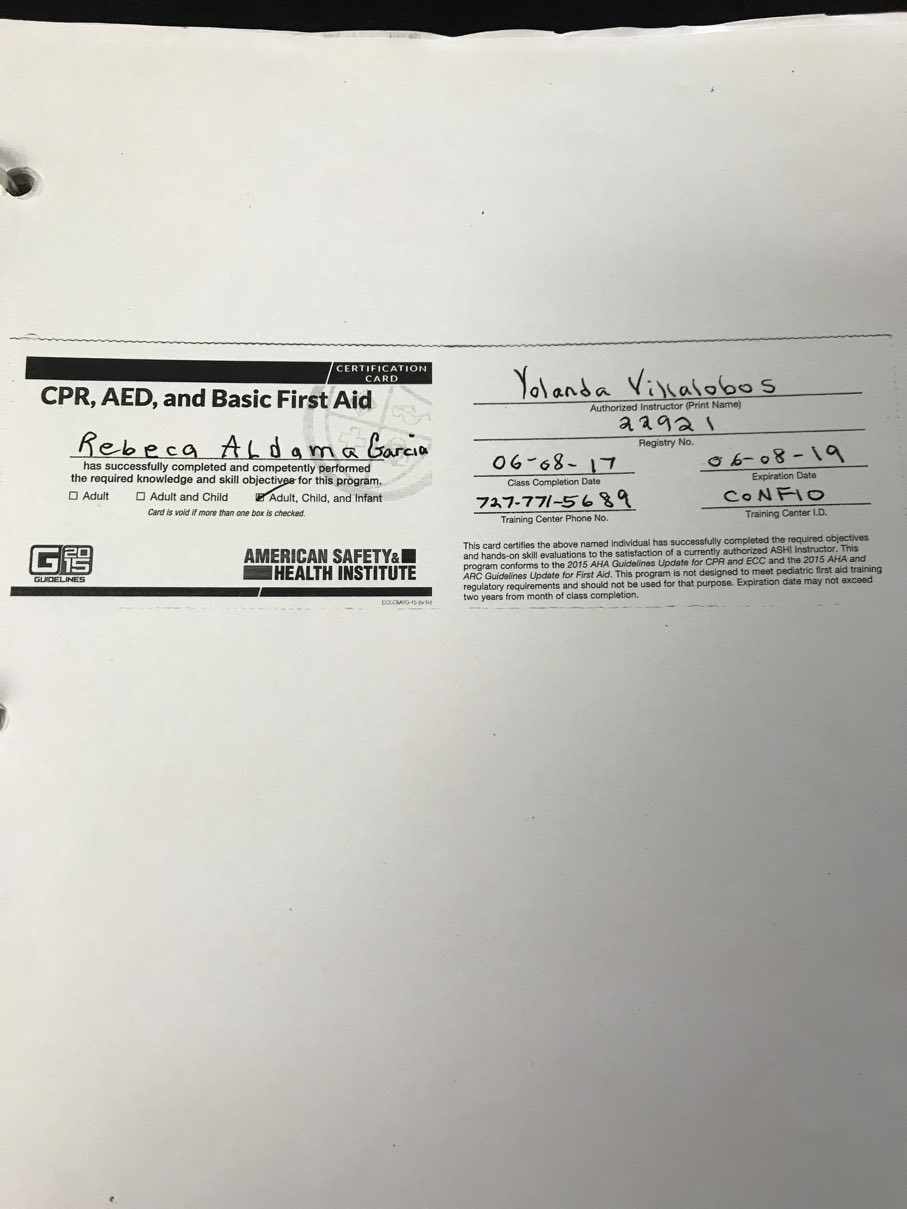 CERTIFICATION
CARD
CPR, AED, and Basic First Aid
Rebeca Aldama Garcia
has successfully completed and competently performed
the required knowledge and skill objectives for this program.
☐ Adult ☐ Adult and Child ☑ Adult, Child, and Infant
Card is void if more than one box is checked.
G 2015
GUIDELINES
AMERICAN SAFETY &
HEALTH INSTITUTE
Yolanda Villalobos
Authorized Instructor (Print Name)
22921
Registry No.
06-08-17 06-08-19
Class Completion Date Expiration Date
727-771-5689 CONFIO
Training Center Phone No. Training Center I.D.
This card certifies the above named individual has successfully completed the required objectives
and hands-on skill evaluations to the satisfaction of a currently authorized ASHI Instructor. This
program conforms to the 2015 AHA Guidelines Update for CPR and ECC and the 2015 AHA and
ARC Guidelines Update for First Aid. This program is not designed to meet pediatric first aid training
regulatory requirements and should not be used for that purpose. Expiration date may not exceed
two years from month of class completion.